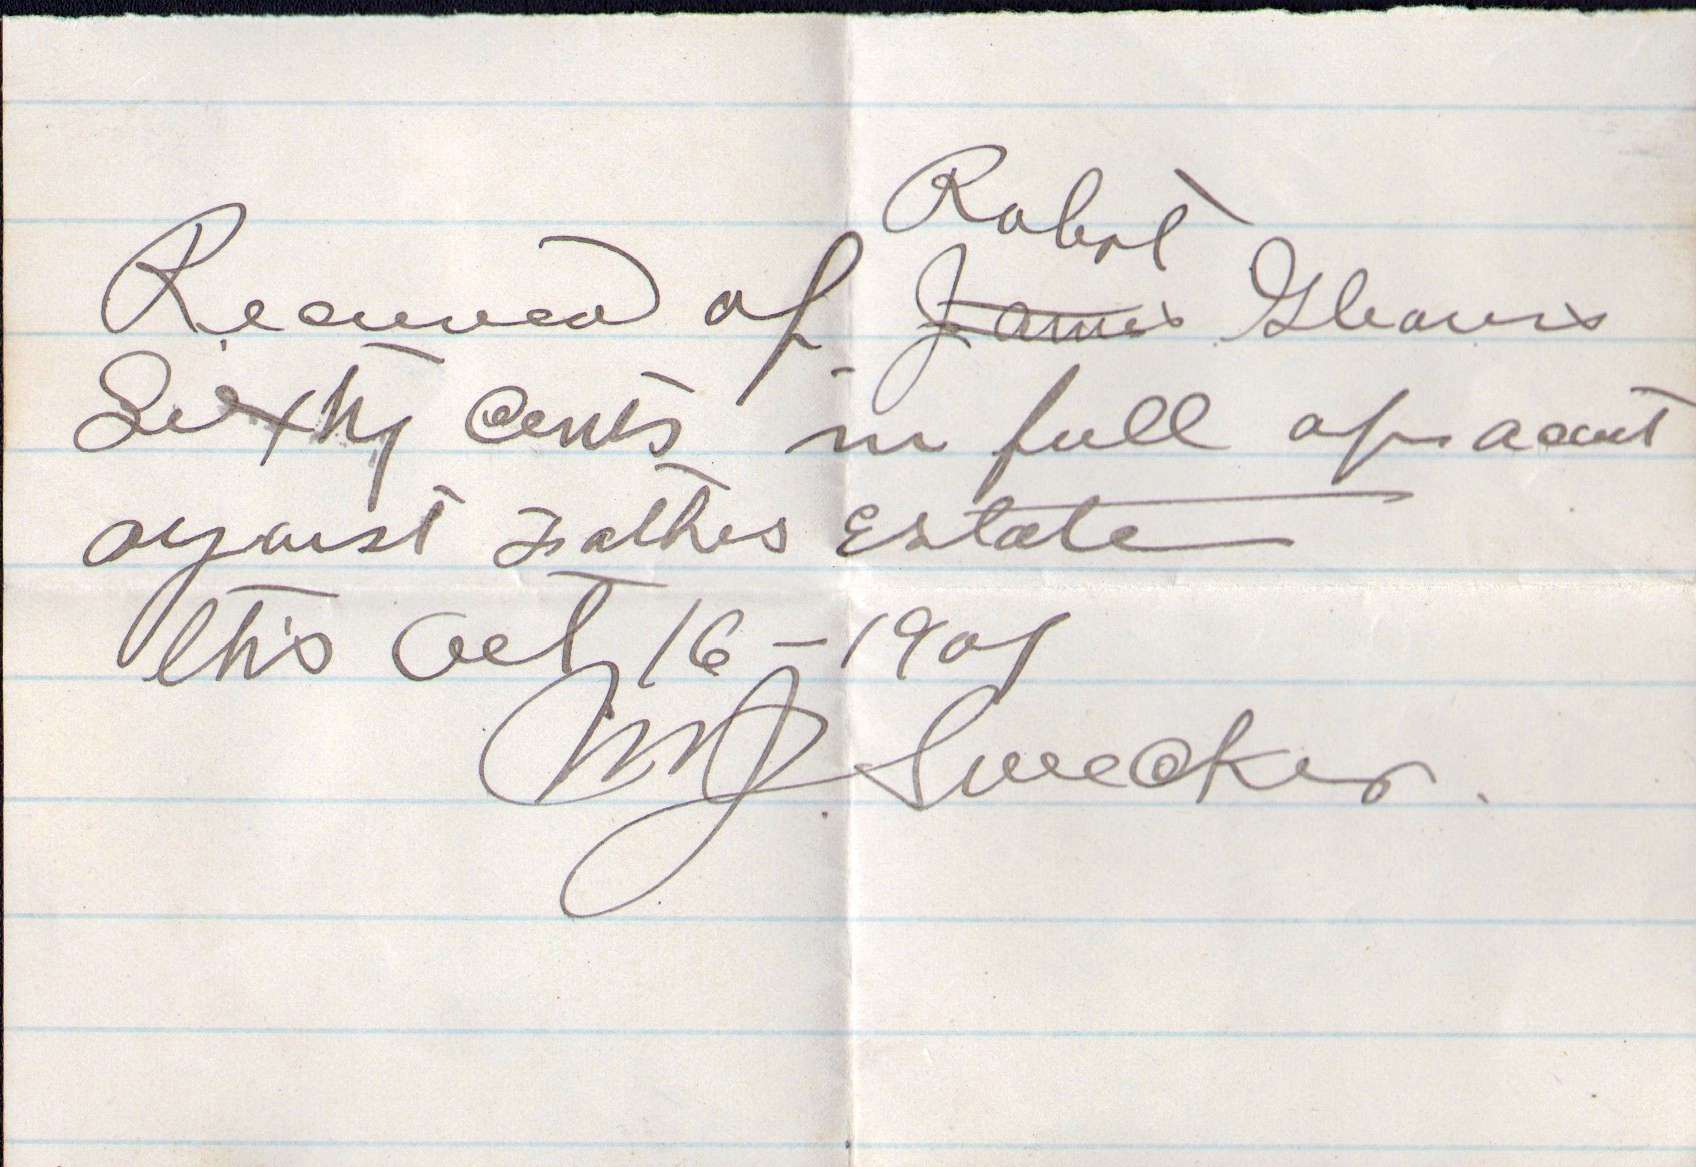 Robert
Received of James Gleaves
Sixty Cents in full of acout
against Fathers Estate
this Oct 16 - 1901
M J Swecker.